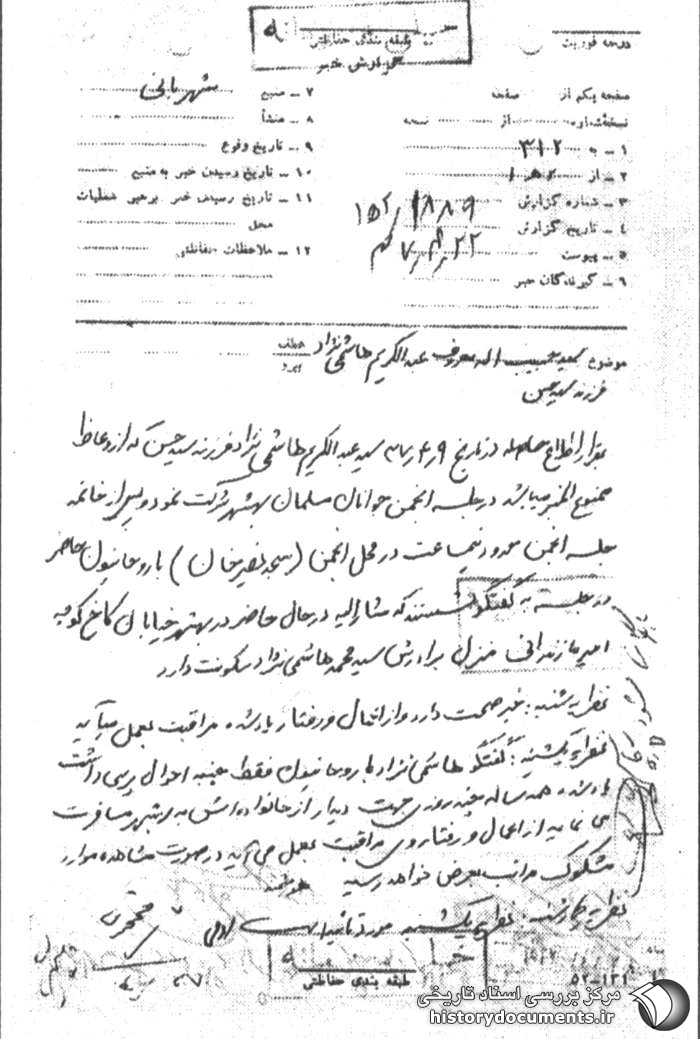 درجه فوریت
طبقه بندی حفاظتی
گزارش خبر
صفحه یکم از صفحه
نسخه شماره از نسخه
۱ ـ به ۳۱۲
۲ ـ از
۳ ـ شماره گزارش
۴ ـ تاریخ گزارش
۵ ـ پیوست
۶ ـ گیرندگان خبر
۷ ـ منبع شهربانی
۸ ـ منشأ
۹ ـ تاریخ وقوع
۱۰ ـ تاریخ رسیدن خبر به منبع
۱۱ ـ تاریخ رسیدن خبر برهبر عملیات
محل
۱۲ ـ ملاحظات حفاظتی
موضوع سید حبیب اله معروف عبدالکریم هاشمی نژاد
عطف
فرزند سید حسن
برابر اطلاع حاصله در تاریخ ۴٫۹ سید عبدالکریم هاشمی نژاد فرزند سید حسن که از وعاظ
ممنوع المنبر میباشد در جلسه انجمن جوانان مسلمان بهشهر شرکت نمود و پس از خاتمه
جلسه انجمن حدود نیمساعت در محل انجمن (مسجد نصیرخان) با روحانیون حاضر
در جلسه به گفتگو نشستند که مشارالیه در حال حاضر در بهشهر خیابان کاخ کوچه
امیر مازندرانی منزل برادرش سید محمد هاشمی نژاد سکونت دارد
نظریه شنبه: خبر صحت دارد و از اعمال و رفتار یادشده مراقبت بعمل میآید
نظریه یکشنبه: گفتگو هاشمی نژاد با روحانیون فقط جنبه احوال پرسی داشت
یادشده همه ساله چند روزی جهت دیدار از خانواده اش به بهشهر مسافرت
می نماید از اعمال و رفتار وی مراقبت بعمل می آید در صورت مشاهده موارد
مشکوک مراتب بعرض خواهد رسید
نظریه چهارشنبه: نظریه یکشنبه مورد تائید است
طبقه بندی حفاظتی
۵۲-۱۲۱
مرکز بررسی اسناد تاریخی
historydocuments.ir